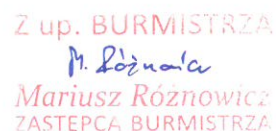 Z up. BURMISTRZA
M. Różnowicz
Mariusz Różnowicz
ZASTĘPCA BURMISTRZA